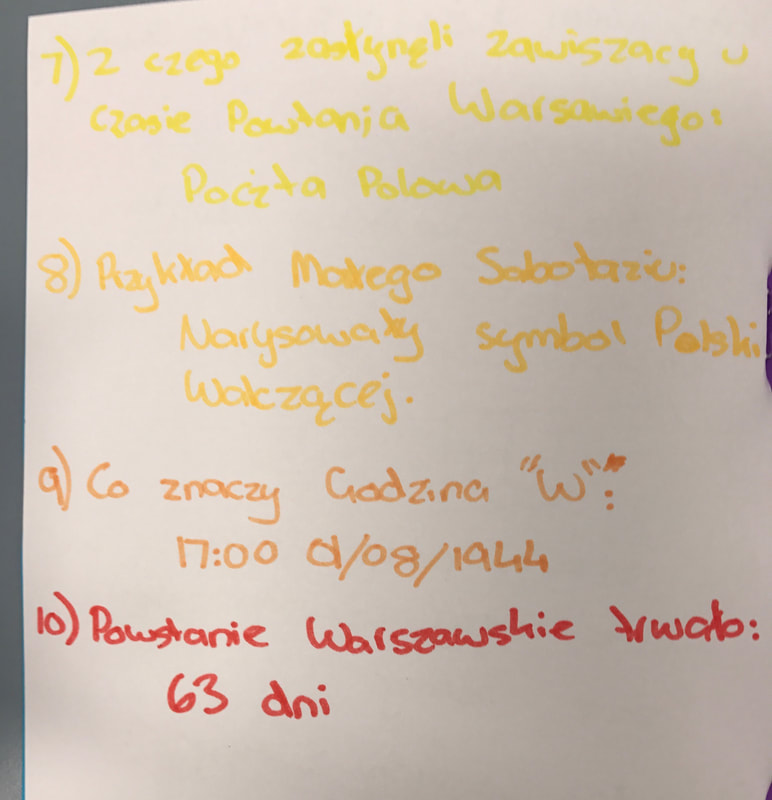 7) Z czego zasłynęli zawiszacy w
czasie Powtania Warsawiego:
Poczta Polowa
8) Przykład Małego Sabotażu:
Narysowały symbol Polski
Walczącej.
9) Co znaczy Godzina "W":
17:00 01/08/1944
10) Powstanie Warszawskie trwało:
63 dni